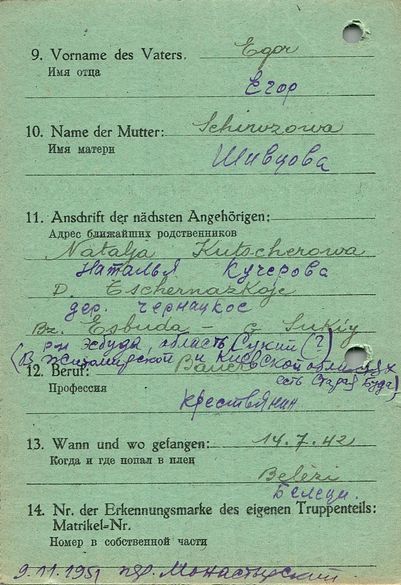 9. Vorname des Vaters. Egor
Имя отца
Егор
10. Name der Mutter: Schiwzowa
Имя матери
Шивцова
11. Anschrift der nächsten Angehörigen:
Адрес ближайших родственников
Natalja Kutscherowa
Наталья Кучерова
D. Tschernazkoje
дер. Чернацкое
Bz. Esbuda - G. Sukiy
р-н Эсбуда, область Сукий (?)
(В Житомирской и Киевской областях
12. Beruf: Bauer
есть Старая Буда)
Профессия
Крестьянин
13. Wann und wo gefangen: 14.7.42
Когда и где попал в плен
Belézi
Белеци.
14. Nr. der Erkennungsmarke des eigenen Truppenteils:
Matrikel-Nr.
Номер в собственной части
9.11.1951 пер. Монастырский